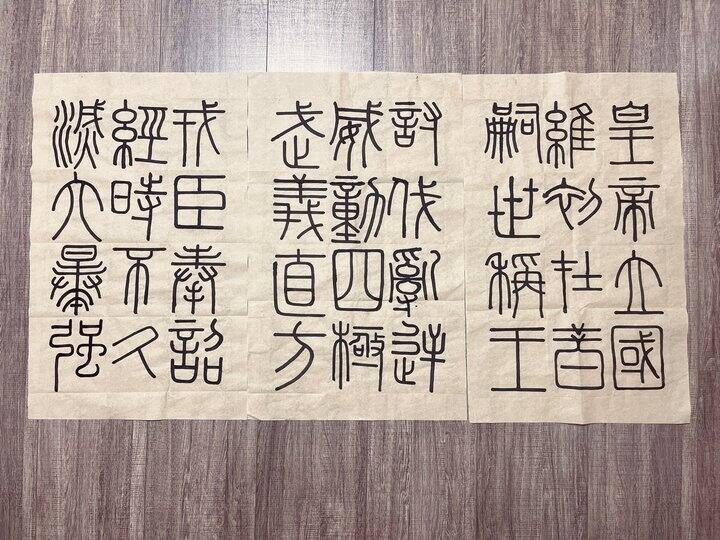 皇帝立國
維初在昔
嗣世稱王
討伐亂逆
威動四極
武義直方
戎臣奉詔
經時不久
滅六暴強